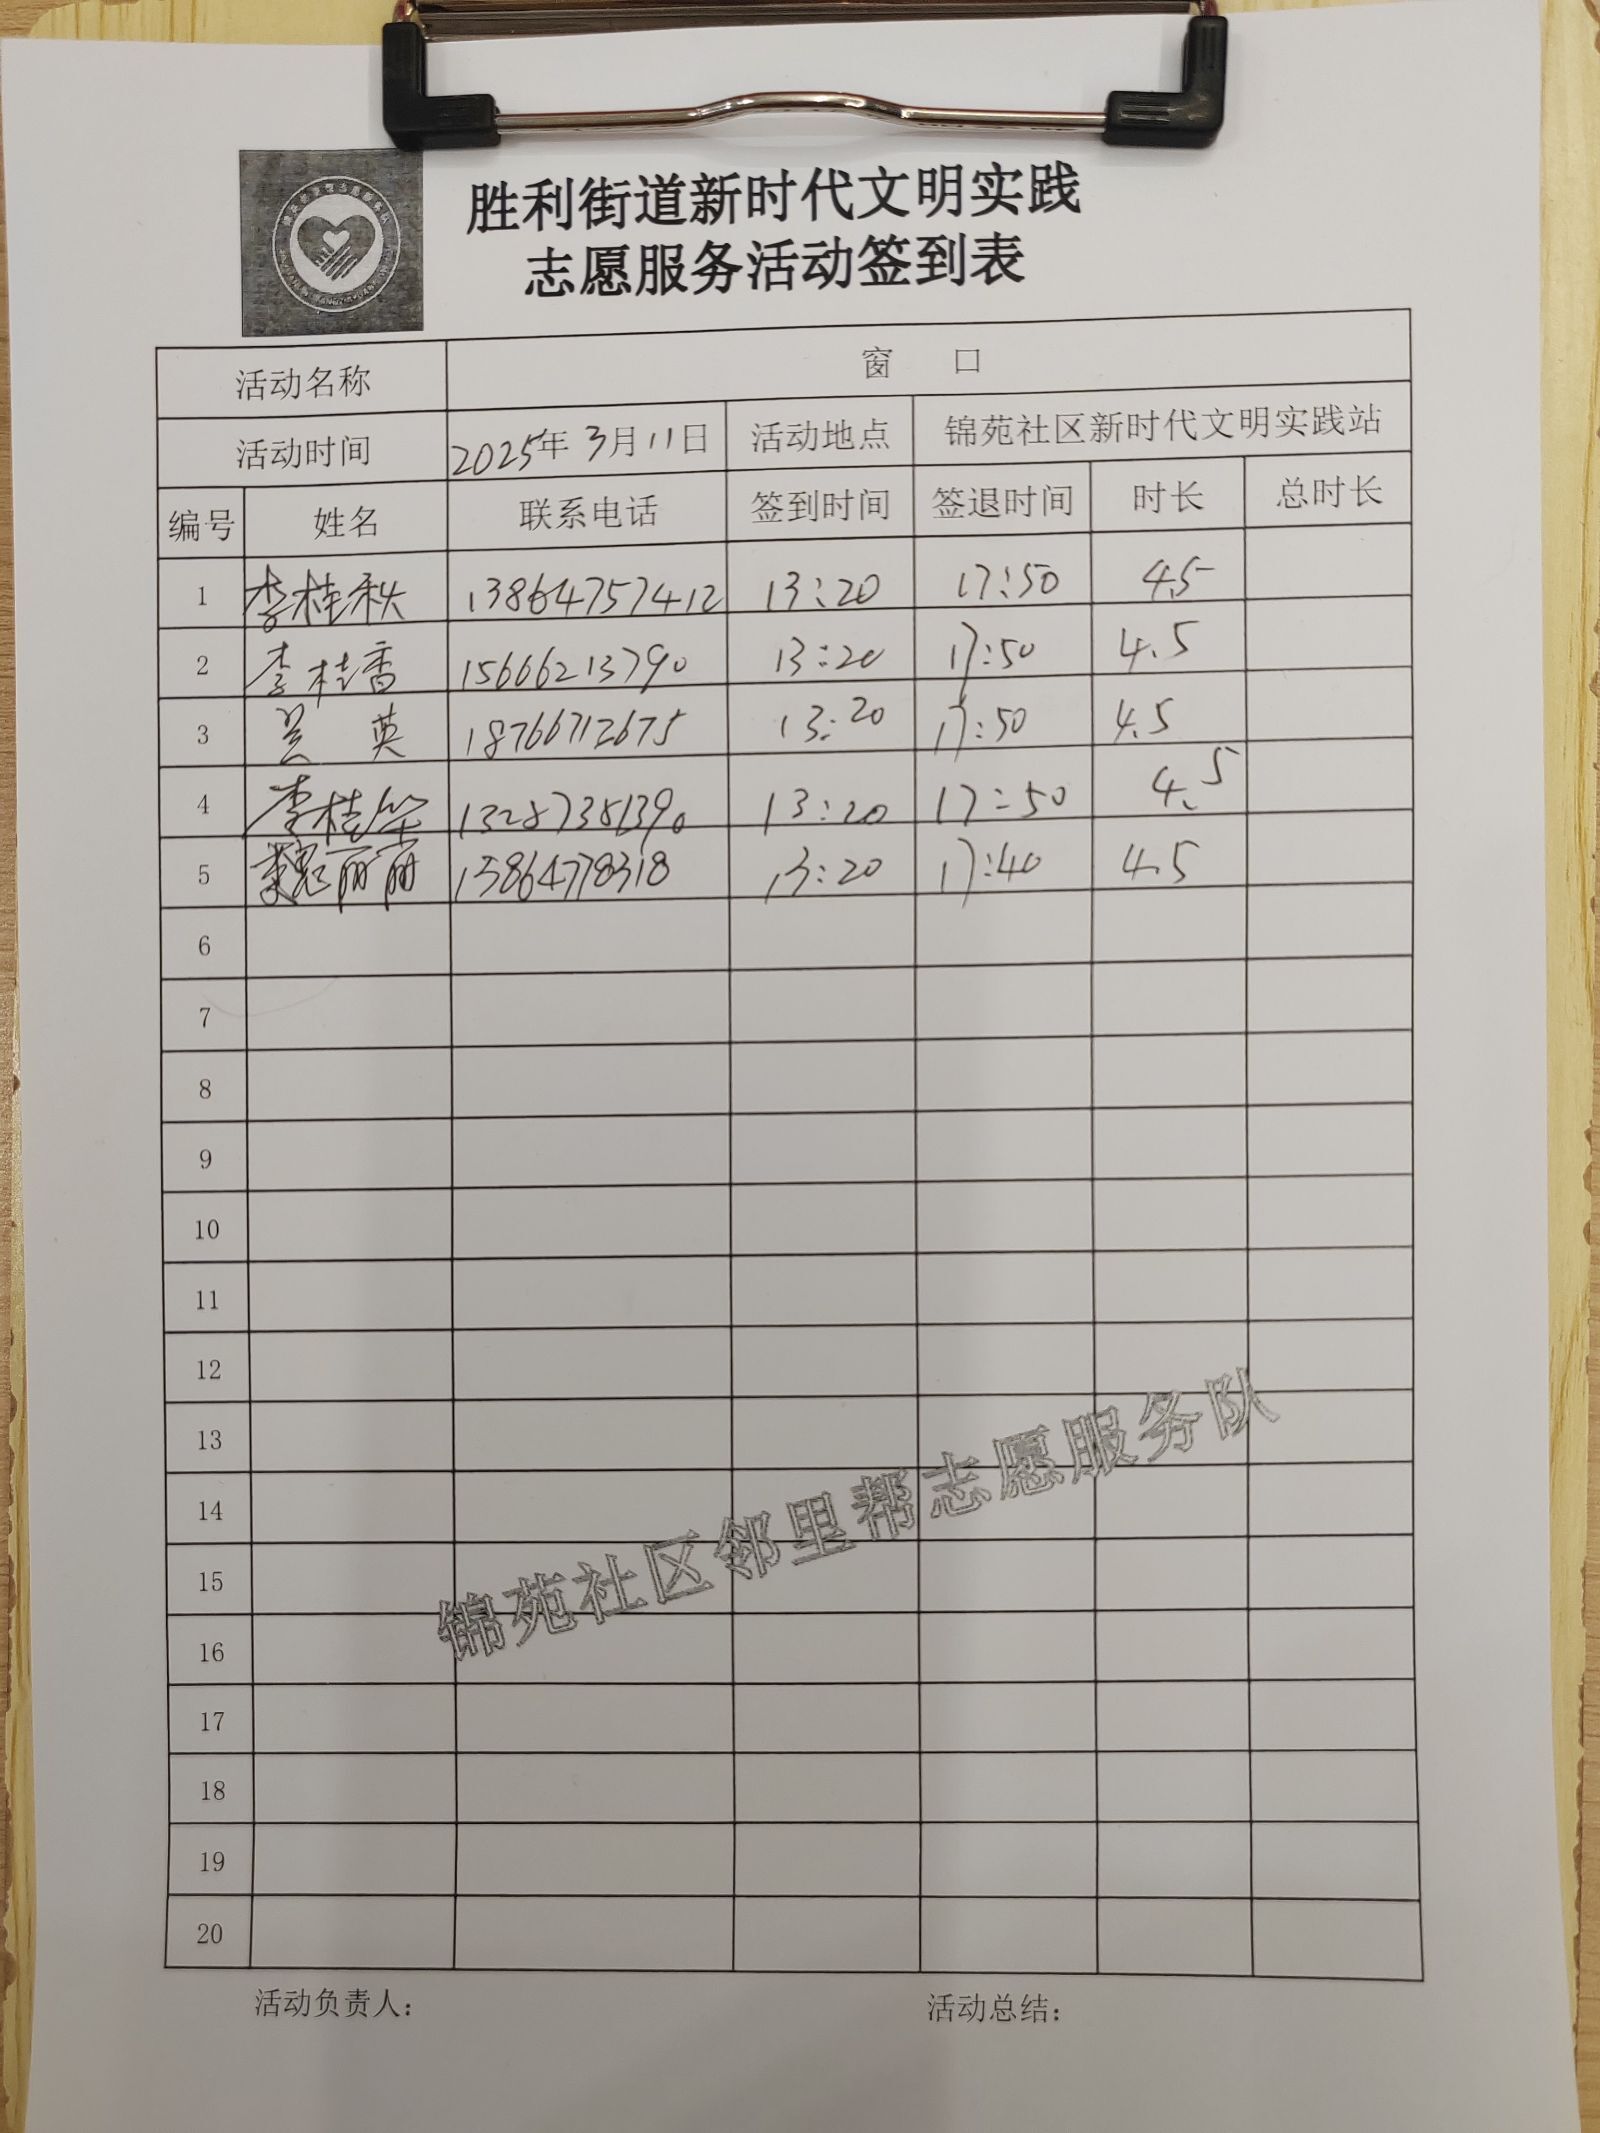 胜利街道新时代文明实践
志愿服务活动签到表
活动名称 窗 口
活动时间 2025年 3月11日 活动地点 锦苑社区新时代文明实践站
编号 姓名 联系电话 签到时间 签退时间 时长 总时长
1 李桂秋 13864757412 13:20 17:50 4.5
2 李桂香 15666213790 13:20 17:50 4.5
3 英 18766712675 13:20 17:50 4.5
4 李桂华 13287381390 13:20 17:50 4.5
5 魏丽丽 15864778318 13:20 17:40 4.5
6
7
8
9
10
11
12
13
14
15
16
17
18
19
20
锦苑社区邻里帮志愿服务队
活动负责人： 活动总结：